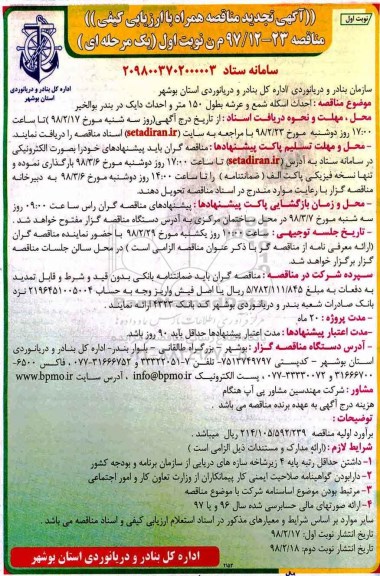 نوبت اول
((آگهی تجدید مناقصه همراه با ارزیابی کیفی))
مناقصه ۲۳-۹۷/۱۲ م ن نوبت اول (یک مرحله ای)
اداره کل بنادر و دریانوردی
استان بوشهر
سامانه ستاد ۲۰۹۸۰۰۳۷۰۲۰۰۰۰۰۳
سازمان بنادر و دریانوردی /اداره کل بنادر و دریانوردی استان بوشهر
موضوع مناقصه : احداث اسکله شمع و عرشه بطول ۱۵۰ متر و احداث دایک در بندر بوالخیر
محل ، مهلت و نحوه دریافت اسناد : از تاریخ درج آگهی(روز سه شنبه مورخ ۹۸/۲/۱۷ )تا ساعت
۱۷:۰۰ روز دوشنبه مورخ ۹۸/۲/۲۳ با مراجعه به سایت (setadiran.ir) اسناد مناقصه را دریافت نمایند.
-محل و مهلت تسلیم پاکت پیشنهادها : مناقصه گران باید پیشنهادهای خودرا بصورت الکترونیکی
در سامانه ستاد به آدرس (setadiran.ir) تا ساعت ۱۷:۰۰ روز دوشنبه مورخ ۹۸/۳/۶ بارگذاری نموده و
تنها نسخه فیزیکی پاکت الف (ضمانتنامه ) را تا ساعت ۱۴:۰۰ روز دوشنبه مورخ ۹۸/۳/۶ به دبیرخانه
مناقصه گزار با رعایت موارد مندرج در اسناد مناقصه تحویل دهند.
-محل و زمان بازگشایی پاکت پیشنهادها : پیشنهادهای مناقصه گران راس ساعت ۰۹:۰۰ روز
سه شنبه مورخ ۹۸/۳/۷ در محل ساختمان مرکزی به آدرس دستگاه مناقصه گزار مفتوح خواهد شد .
-تاریخ جلسه توجیهی : ساعت ۱۰:۰۰ روز یکشنبه مورخ ۹۸/۲/۲۹ با حضور نماینده مناقصه گران
(ارائه معرفی نامه از مناقصه گر با ذکر عنوان مناقصه الزامی است ) در محل سالن جلسات مناقصه
گزار برگزار خواهد شد.
سپرده شرکت در مناقصه : مناقصه گران باید ضمانتنامه بانکی بدون قید و شرط و قابل تمدید
به دفعات به مبلغ ۵/۷۸۲/۱۱۱/۸۴۵ ریال یا اصل فیش واریز وجه به حساب ۲۱۹۶۴۵۱۰۰۵۰۰۴ نزد
بانک صادرات شعبه بندر و دریانوردی بوشهر کد بانک ۴۳۲۲ ارائه نمایند .
-مدت پروژه : ۲۰ ماه
-مدت اعتبار پیشنهادها : مدت اعتبار پیشنهادها حداقل باید ۹۰ روز باشد
- آدرس دستگاه مناقصه گزار : بوشهر - بزرگراه طالقانی - بلوار بندر- اداره کل بنادر و دریانوردی
استان بوشهر - کدپستی ۷۵۱۳۷۴۹۷۹۷ تلفن ۷-۳۳۳۲۲۰۵۱ و ۳۱۶۶۶۷۵۲-۰۷۷ ، فاکس ۶۵۰۰-
۳۱۶۶۶۷۰۰ و ۳۳۳۳۰۰۷۲-۰۷۷ ، پست الکترونیک info@bpmo.ir ، آدرس سایت www.bpmo.ir
مشاور : شرکت مهندسین مشاور پی آب هنگام
هزینه درج آگهی به عهده برنده مناقصه می باشد .
توضیحات :
برآورد اولیه مناقصه ۲۱۴/۱۰۵/۵۹۲/۲۳۹ ریال میباشد .
شرایط لازم : (ارائه مدارک و مستندات ذیل الزامی است )
۱- داشتن حداقل رتبه پایه ۴ زیرشاخه سازه های دریایی از سازمان برنامه و بودجه کشور
۲- دارابودن گواهینامه صلاحیت ایمنی کار پیمانکاران از وزارت تعاون کار و امور اجتماعی
۳- مرتبط بودن موضوع اساسنامه شرکت با موضوع مناقصه
۴- ارائه صورتهای مالی حسابرسی شده سال ۹۶ و یا ۹۷
سایر موارد بر اساس شرایط و معیارهای مذکور در اسناد استعلام ارزیابی کیفی و اسناد مناقصه می باشد .
تاریخ انتشار نوبت اول: ۹۸/۲/۱۷
تاریخ انتشار نوبت دوم: ۹۸/۲/۱۸
اداره کل بنادر و دریانوردی استان بوشهر